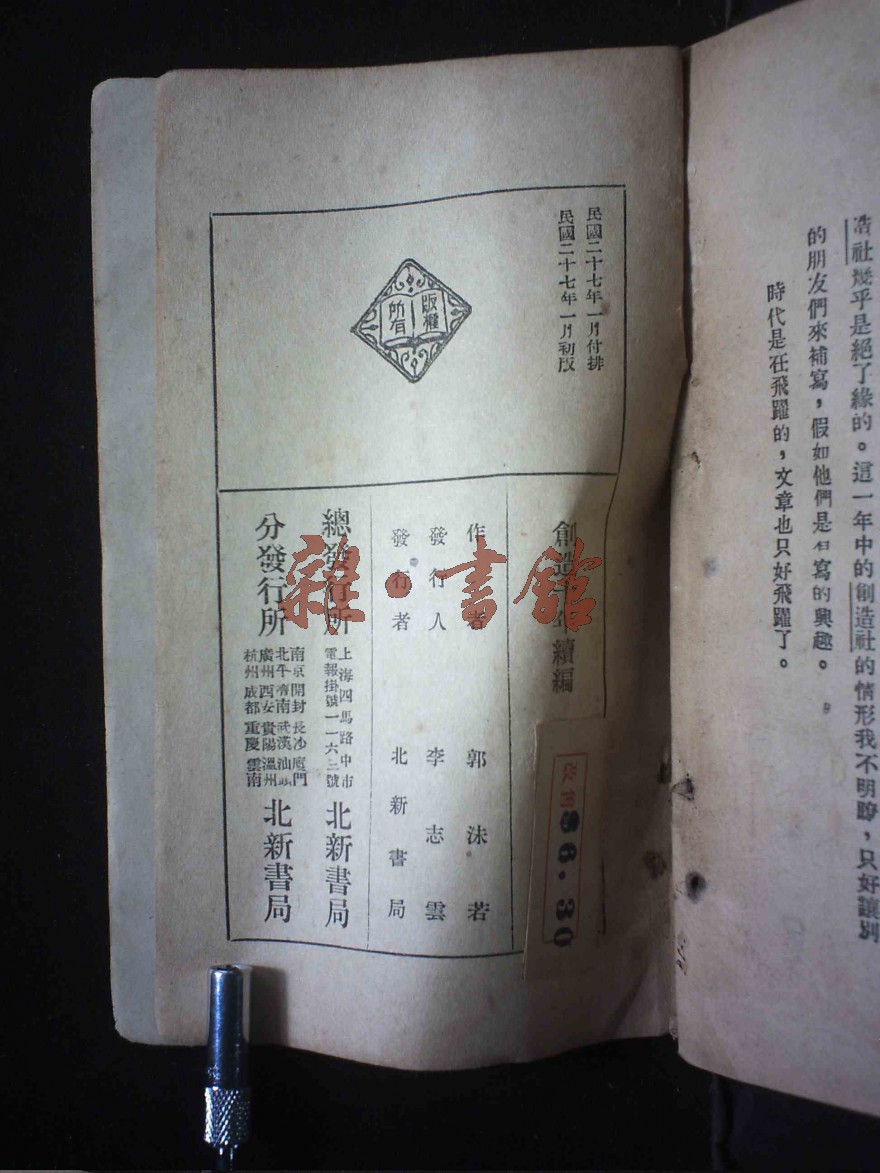 浩社幾乎是絕了緣的。這一年中的創造社的情形我不明瞭，只好讓別
的朋友們來補寫，假如他們是有寫的興趣。
時代是在飛躍的，文章也只好飛躍了。
民國二十七年一月付排
民國二十七年一月初版
版權
所有
創造十年續編
改售
$6.30
作者 郭沫若
發行人 李志雲
發行者 北新書局
總發行所 上海四馬路中市
電報掛號一一六三號 北新書局
分發行所
南京開封長沙廈門
北平濟南武漢汕頭
廣州西安貴陽溫州
杭州成都重慶雲南
北新書局
雜·書館